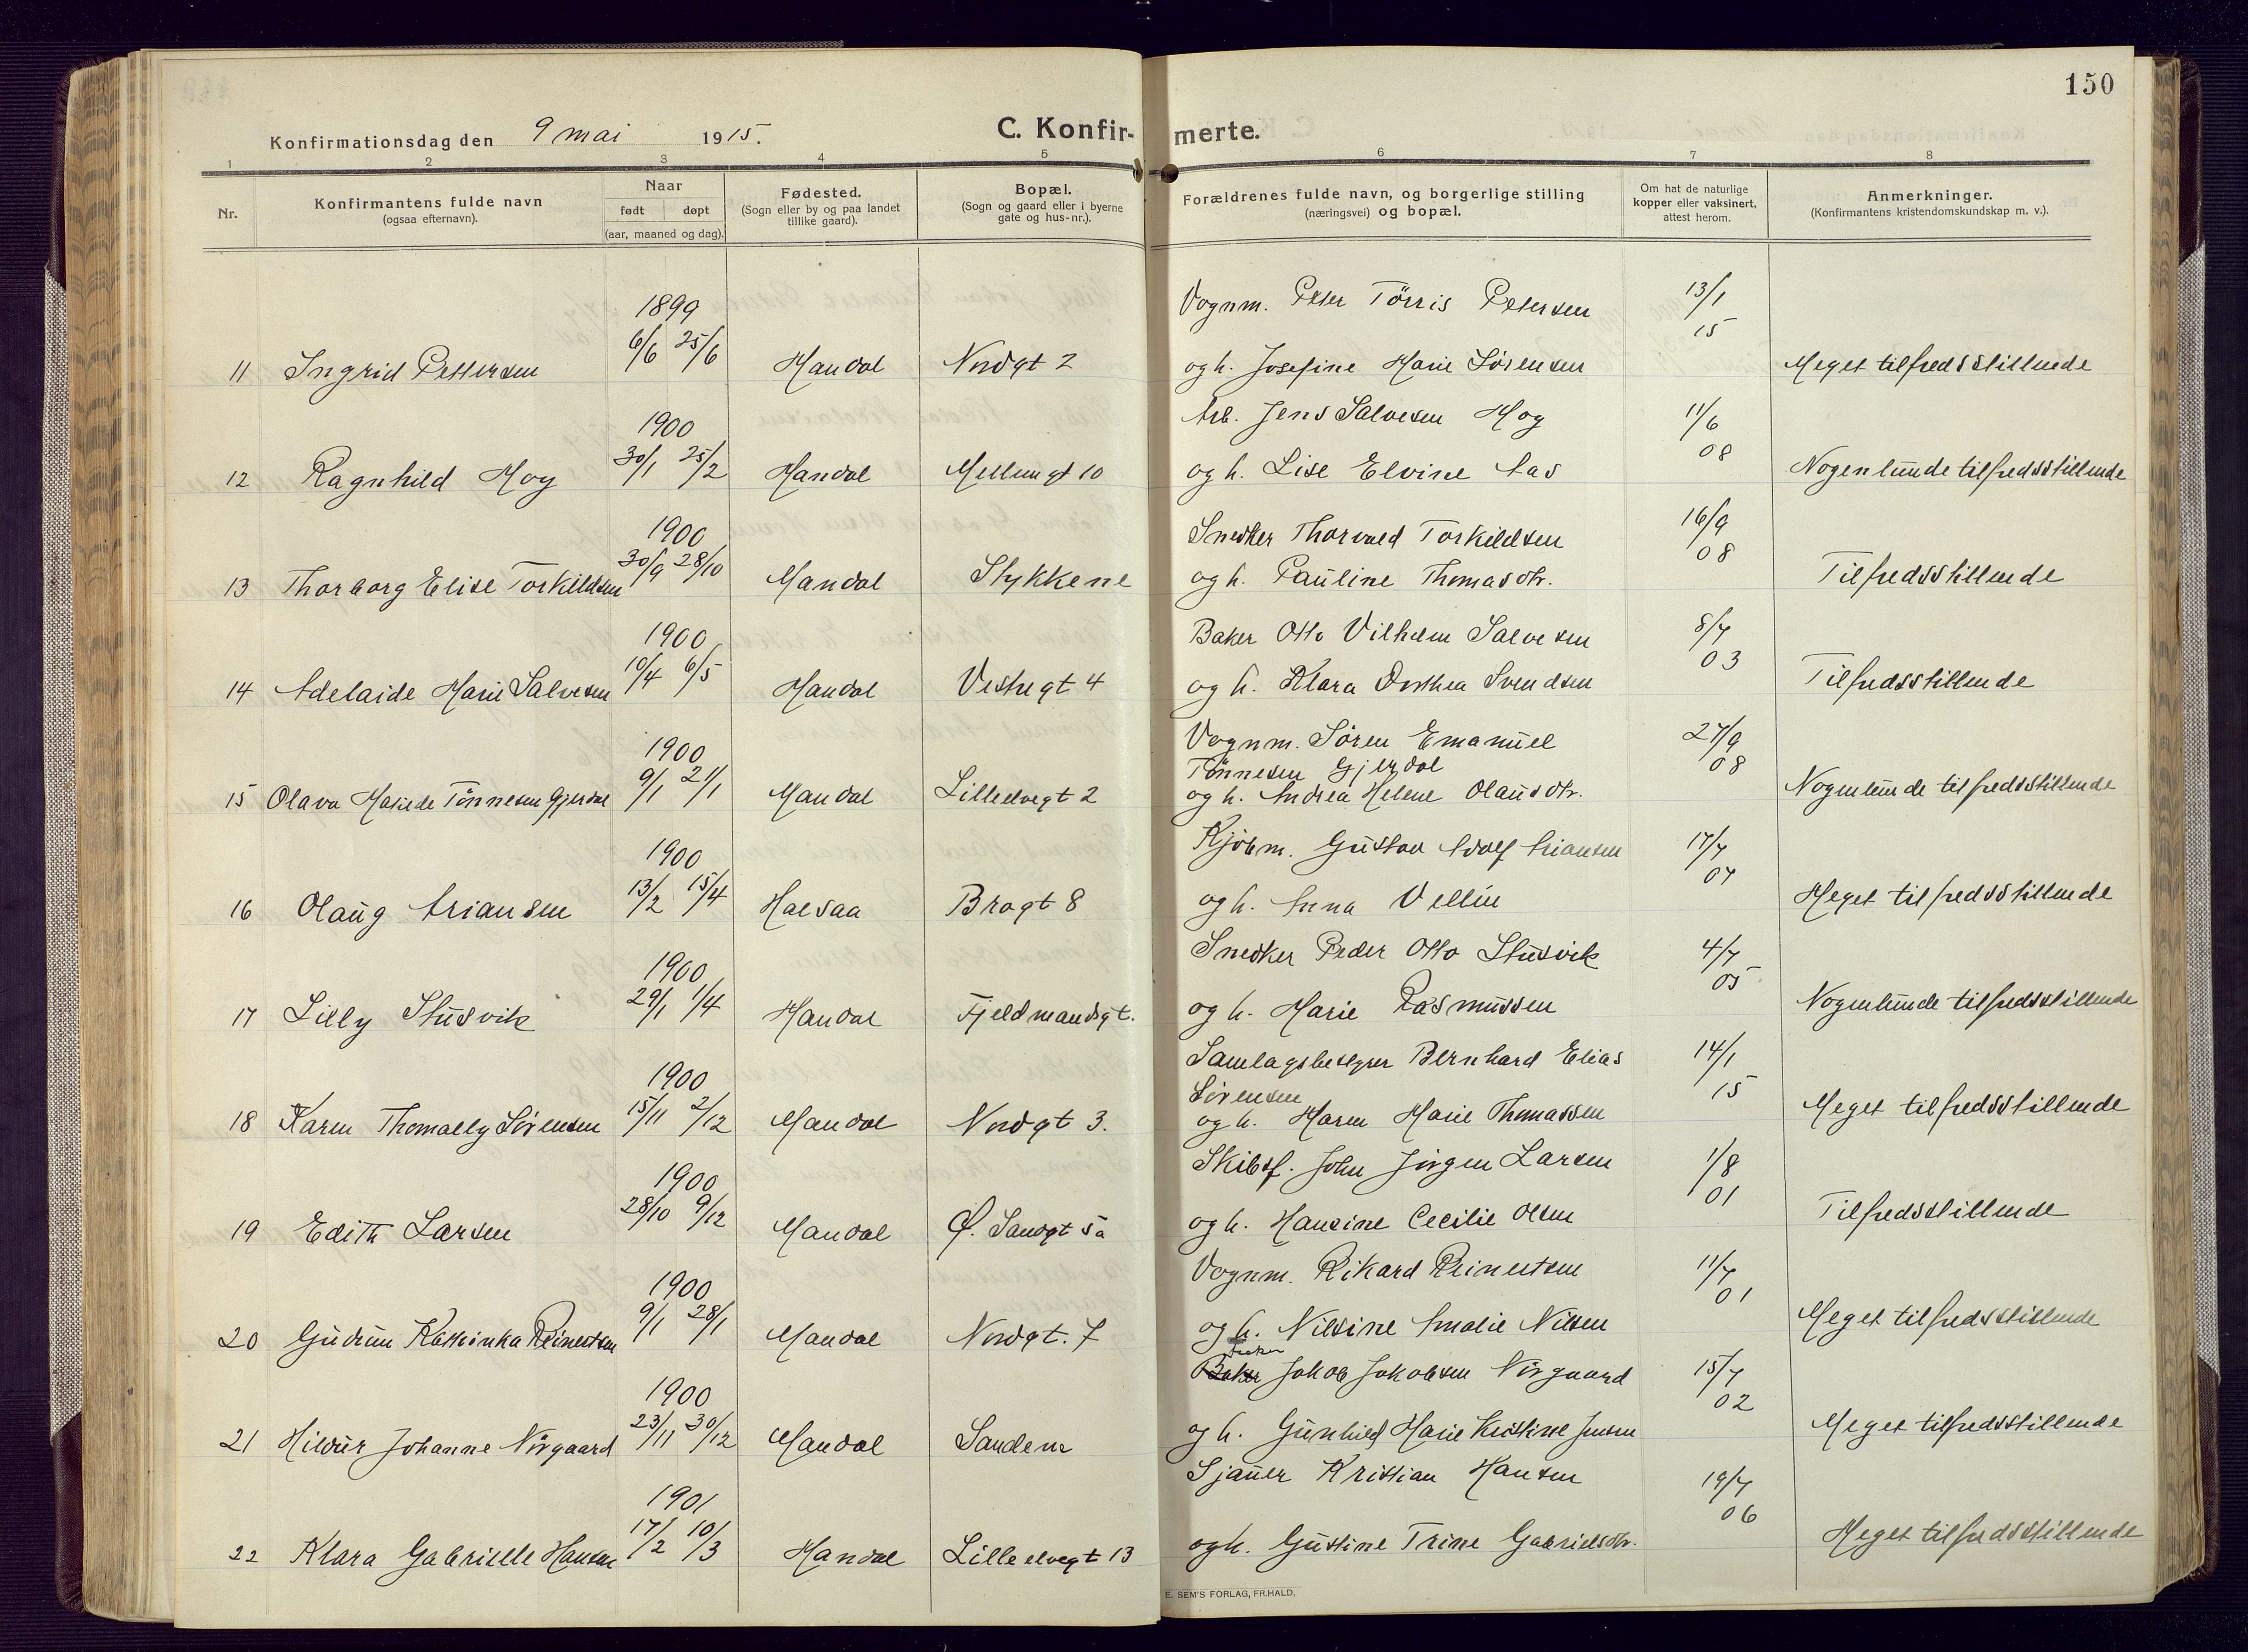 150
Konfirmationsdag den 9 mai 1915.
C. Konfir-merte.
1 2 3 4 5 6 7 8
Nr.
Konfirmantens fulde navn
(ogsaa efternavn).
Naar
født døpt
(aar, maaned og dag).
Fødested.
(Sogn eller by og paa landet
tillike gaard).
Bopæl.
(Sogn og gaard eller i byerne
gate og hus-nr.).
Forældrenes fulde navn, og borgerlige stilling
(næringsvei) og bopæl.
Om hat de naturlige
kopper eller vaksinert,
attest herom.
Anmerkninger.
(Konfirmantens kristendomskundskap m. v.).
1899 Vognm. Peter Tørris Petersen 13/1
11 Ingrid Pettersen 6/6 25/6 Mandal Nordgt 2 og h. Josefine Marie Sørensen 15 Meget tilfredsstillende
1900 Arb. Jens Salvesen Moy 11/6
12 Ragnhild Moy 30/1 25/2 Mandal Mellemgt 10 og h. Lise Elvine Aas 08 Nogenlunde tilfredsstillende
1900 Snedker Thorvald Torkildsen 16/9
13 Thorborg Elise Torkildsen 30/9 28/10 Mandal Stykkene og h. Pauline Thomasdtr. 08 Tilfredsstillende
1900 Baker Otto Vilhelm Salvesen 8/7
14 Adelaide Marie Salvesen 10/4 6/5 Mandal Vestregt 4 og h. Klara Dorthea Svendsen 03 Tilfredsstillende
1900 Vognm. Søren Emanuel 27/9
Tønnesen Gjerdal 08
15 Olava Tønnesen Gjerdal 9/1 21/1 Mandal Lilleelvegt 2 og h. Andrea Helene Olausdtr. Nogenlunde tilfredsstillende
1900 Kjøbm. Gustav Adolf Ariansen 17/7
16 Olaug Ariansen 13/2 15/4 Halsaa Brogt 8 og h. Anna Vellin 07 Meget tilfredsstillende
1900 Snedker Peder Otto Stusvik 4/7
17 Lilly Stusvik 29/1 1/4 Mandal Fjeldmandsgt. og h. Marie Rasmussen 05 Nogenlunde tilfredsstillende
1900 Samlagsbestyrer Bernhard Elias 14/1
Sørensen 15
18 Karen Thomally Sørensen 15/11 2/12 Mandal Nordgt 3. og h. Maren Marie Thomassen Meget tilfredsstillende
1900 Skibsf. John Jørgen Larsen 1/8
19 Edith Larsen 28/10 9/12 Mandal Ø. Sandgt 5a og h. Hansine Cecilie Olsen 01 Tilfredsstillende
1900 Vognm. Rikard Reinertsen 11/7
20 Gudrun Kathinka Reinertsen 9/1 28/1 Mandal Nordgt. 7 og h. Nilsine Amalie Nilsen 01 Meget tilfredsstillende
1900 Baker Jakob Jakobsen Nørgaard 15/7
21 Hildur Johanne Nørgaard 23/11 30/12 Mandal Sandene og h. Gunhild Marie Kristine Jensen 02 Meget tilfredsstillende
1901 Sjauer Kristian Hansen 19/7
22 Klara Gabrielle Hansen 17/2 10/3 Mandal Lilleelvegt 13 og h. Gustine Trine Gabrielsdtr. 06 Meget tilfredsstillende
E. SEM'S FORLAG, FR.HALD.